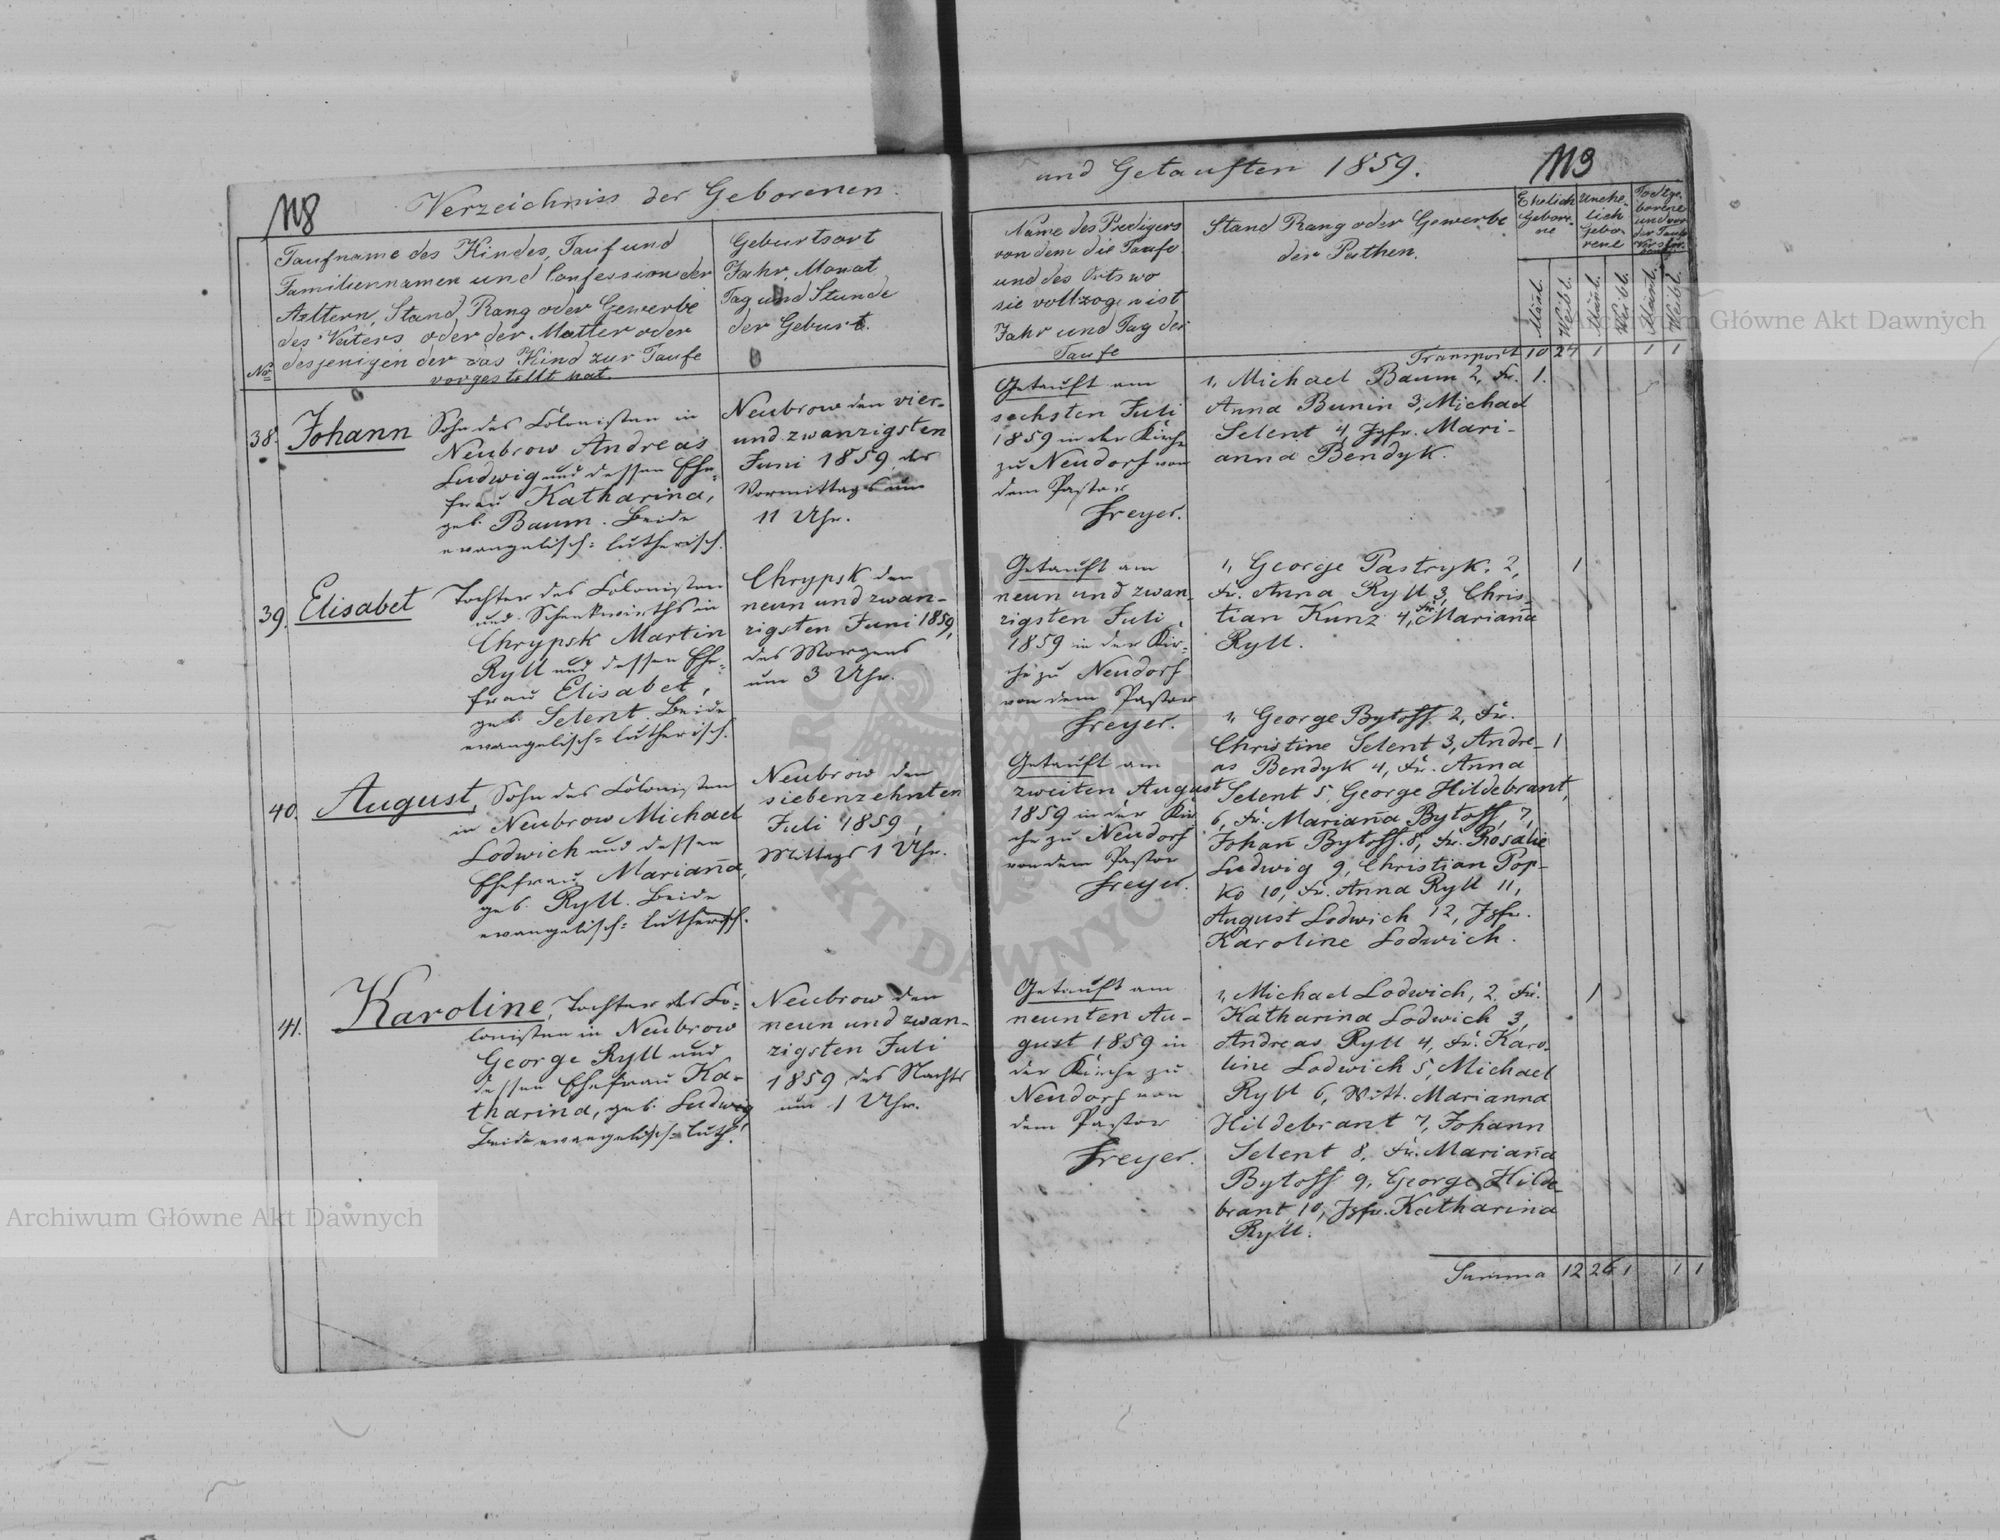 118
Verzeichniss der Geborenen
Taufname des Kindes, Tauf und
Familiennamen und Confession der
Aeltern, Stand, Rang oder Gewerbe
des Vaters oder der Mutter oder
desjenigen der das Kind zur Taufe
vorgestellt hat.
No
Geburtsort
Jahr, Monat
Tag und Stunde
der Geburt.
38.
Johann
Sohn des Colonisten in
Neubrow Andreas
Ludwig und dessen Ehe-
frau Katharina,
geb. Baum. Beide
evangelisch=lutherisch.
Neubrow den vier-
und zwanzigsten
Juni 1859, des
Vormittags um
11 Uhr.
39.
Elisabet
Tochter des Colonisten
und Schenkwirths in
Chrypsk Martin
Ryll und dessen Ehe-
frau Elisabet,
geb. Selent. Beide
evangelisch=lutherisch.
Chrypsk den
neun und zwan-
zigsten Juni 1859,
des Morgens
um 3 Uhr.
40.
August, Sohn des Colonisten
in Neubrow Michael
Lodwich und dessen
Ehefrau Mariana,
geb. Ryll. Beide
evangelisch=lutherisch.
Neubrow den
siebenzehnten
Juli 1859,
Mittags 1 Uhr.
41.
Karoline, Tochter des Co-
lonisten in Neubrow
George Ryll und
dessen Ehefrau Ka-
tharina, geb. Ludwig
Beide evangelisch=luth.
Neubrow den
neun und zwan-
zigsten Juli
1859, des Nachts
um 1 Uhr.
und Getauften 1859.
119
Name des Predigers
von dem die Taufe
und des Orts wo
sie vollzogen ist
Jahr und Tag der
Taufe
Stand Rang oder Gewerbe
der Pathen.
Ehelich
Gebore-
ne
Unehe-
lich
Gebo-
rene
Todtge-
borene
und vor
der Taufe
Männl.
Weibl.
Männl.
Weibl.
Männl.
Weibl.
Transport 10 24 1 1 1
Getauft am
sechsten Juli
1859 in der Kirche
zu Neudorf von
dem Pastor
Freyer.
1, Michael Baum 2, Fr. 1.
Anna Bunin 3, Michael
Selent 4, Jgfr. Mari-
anna Bendyk.
Getauft am
neun und zwan-
zigsten Juli
1859 in der Kir-
che zu Neudorf
von dem Pastor
Freyer.
1, George Pastryk. 2, 1
Fr. Anna Ryll 3, Chris-
tian Kunz 4, Fr. Mariana
Ryll.
Getauft am
zweiten August
1859 in der Kir
che zu Neudorf
von dem Pastor
Freyer.
1, George Bytoff 2, Fr.
Christine Selent 3, Andre- 1
as Bendyk 4, Fr. Anna
Selent 5, George Hildebrant,
6, Fr. Mariana Bytoff, 7,
Johan Bytoff. 8, Fr. Rosalie
Ludwig 9, Christian Pop-
ko 10, Fr. Anna Ryll 11,
August Lodwich 12, Jgfr.
Karoline Lodwich.
Getauft am
neunten Au-
gust 1859 in
der Kirche zu
Neudorf von
dem Pastor
Freyer.
1, Michael Lodwich, 2, Fr. 1
Katharina Lodwich 3,
Andreas Ryll 4, Fr. Karo-
line Lodwich 5, Michael
Ryll 6, Marianna
Hildebrant 7, Johann
Selent 8, Fr. Mariana
Bytoff 9, George Hilde-
brant 10, Jgfr. Katharina
Ryll.
Summa 12 26 1 1 1
Archiwum Główne Akt Dawnych
Główne Akt Dawnych